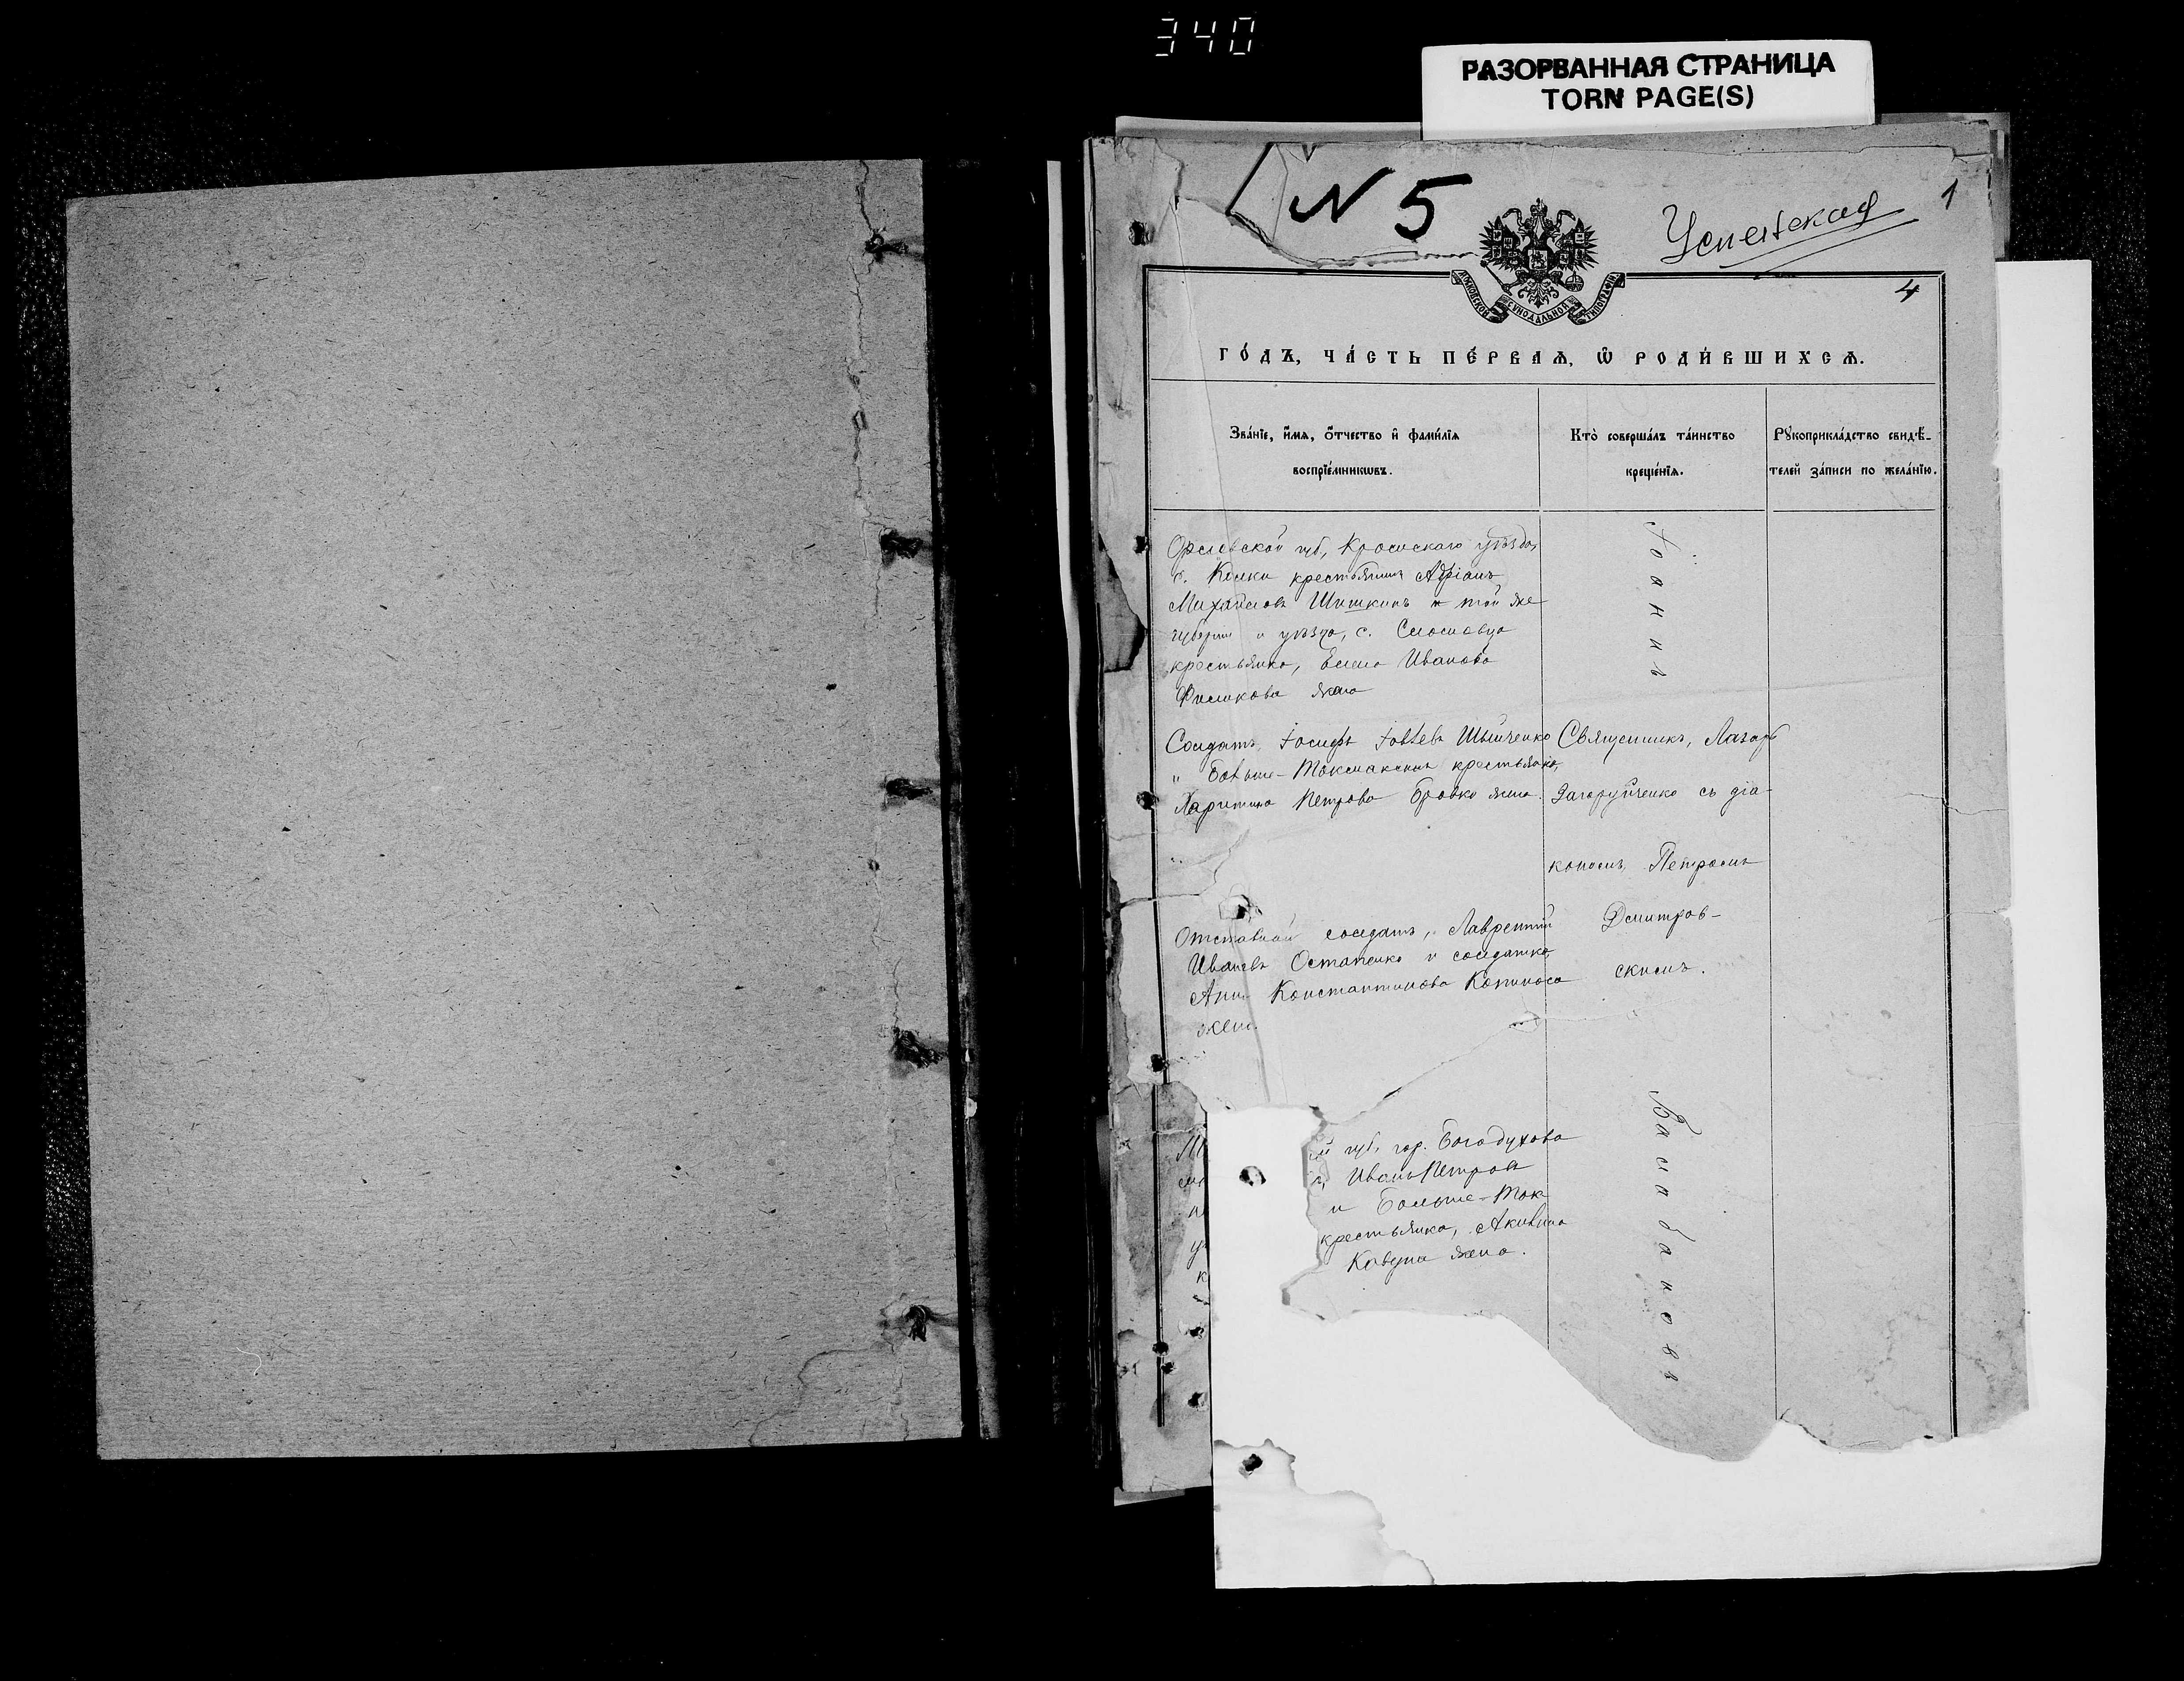 340
РАЗОРВАННАЯ СТРАНИЦА
TORN PAGE(S)
N 5
Успенская
1
МОСКОВСКОЙ СѴНОДАЛЬНОЙ ТИПОГРАФІИ
4
ГО́ДЪ, ЧА́СТЬ ПЕ́РВАѦ, Ѡ҆ РОДИ́ВШИХСѦ.
Зва́нїе, и҆́мѧ, ѻ҆́тчество и҆ фами́лїѧ
воспрїе́мникѡвъ.
Кто̀ соверша́лъ та́инство
креще́нїѧ.
Рꙋкоприкла́дство свидѣ́-
телей за́писи по жела́нїю.
Орловской губ, Кромскаго уѣзда,
с. крестьянинъ Адріанъ
Михайловъ Шишкинъ и той же
губерніи и уѣзда, с.
крестьянка, Елена Иванова
жена
Іоаннъ
Солдатъ, Іосифъ Іовлевъ
" Больше-Токмакская крестьянка,
Харитина Петрова Бровко жена.
Священникъ, Лазарь
Загоруйченко съ діа-
кономъ Петромъ
Дмитров-
скимъ.
Отставной солдатъ, Лаврентій
Ивановъ Остапенко и солдатка,
Анна Константинова Копиноса
жена.
й губ, гор. Богодухова
Иванъ Петровъ
и Больше-Ток
крестьянка, Акилина
Кавуна жена.
Балабановъ